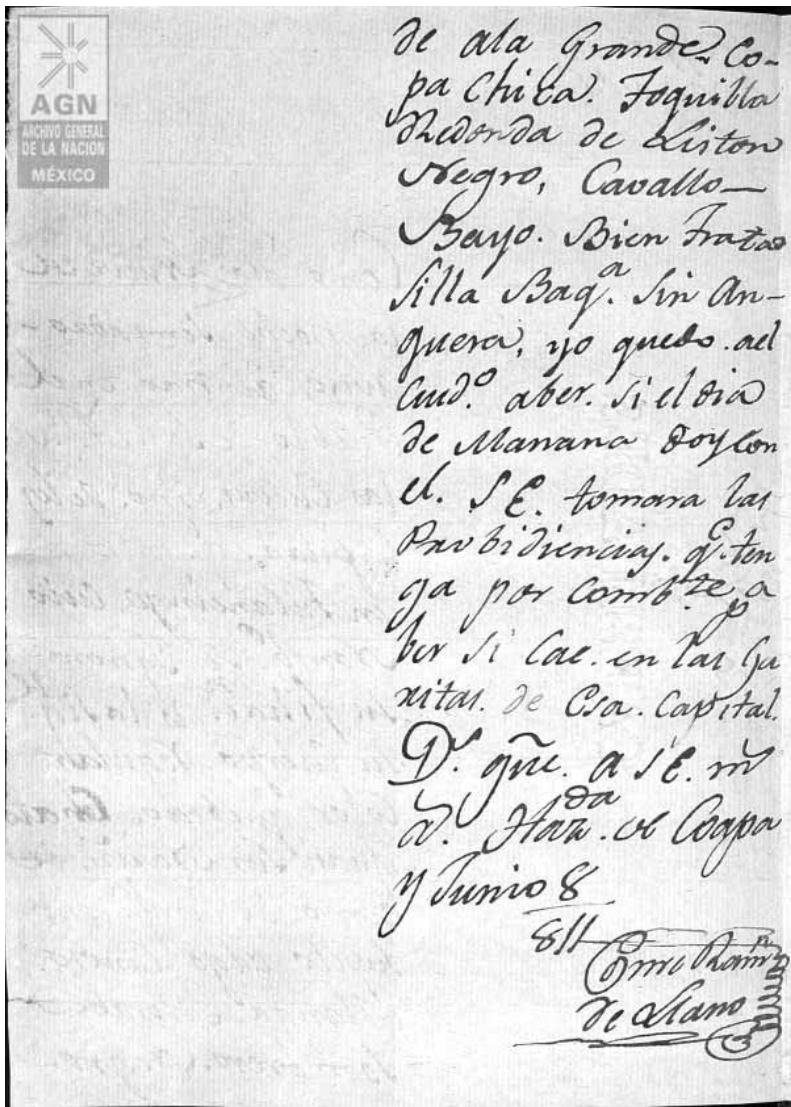 AGN
ARCHIVO GENERAL
DE LA NACION
MÉXICO
de ala Grande Co-
pa Chica. Toquilla
Redonda de Liston
Negro, Cavallo
Bayo. Bien Tratado
Silla Baq.a Sin An-
quera, yo quedo. ael
Cuid.o aber. si el dia
de Manana doy con
el. S E. tomara las
Probidiencias. q.e ten
ga por comb.te p.a
ber si Cae. en las Ga
ritas. de Esa. Capital.
D.s gue. a S E. m.s
a.s Haz.da de Coapa
y Junio 8
811
Ram.n
de Llano